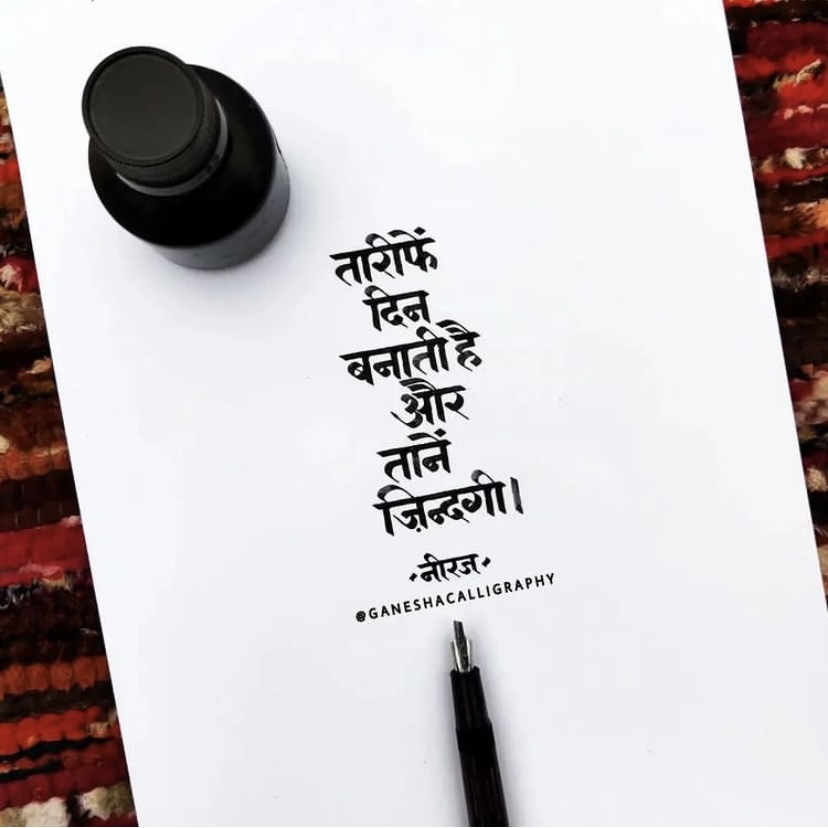 तारीफें
दिन
बनाती है
और
तानें
ज़िन्दगी।
•नीरज•
@GANESHACALLIGRAPHY